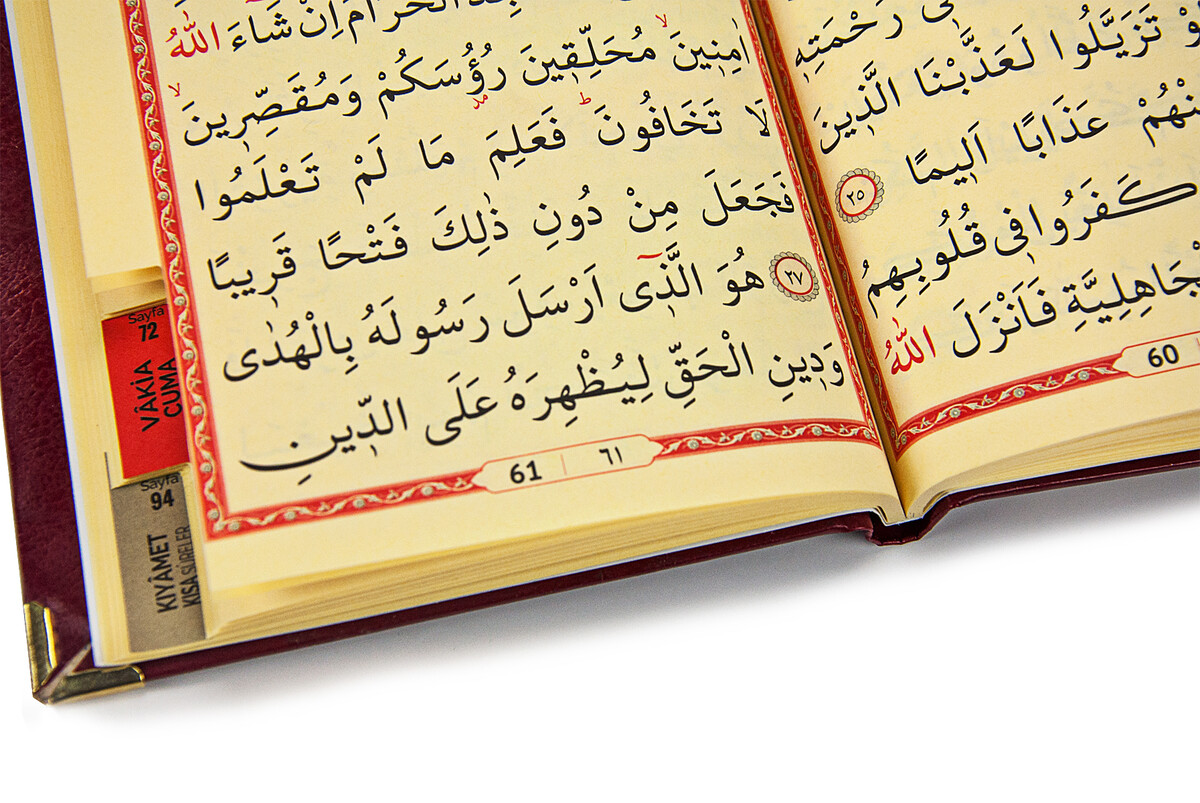 رَحْمَتِه۪
وْ تَزَيَّلُوا لَعَذَّبْنَا الَّذ۪ينَ
نْهُمْ عَذَابًا اَل۪يمًا ﴿٢٥﴾
كَفَرُوا ف۪ى قُلُوبِهِمُ
جَاهِلِيَّةِ فَاَنْزَلَ اللّٰهُ
60
الْحَرَامَ اِنْ شَٓاءَ اللّٰهُ
اٰمِن۪ينَۙ مُحَلِّق۪ينَ رُؤُ۫سَكُمْ وَمُقَصِّر۪ينَۙ
لَا تَخَافُونَۜ فَعَلِمَ مَا لَمْ تَعْلَمُوا
فَجَعَلَ مِنْ دُونِ ذٰلِكَ فَتْحًا قَر۪يبًا
﴿٢٧﴾ هُوَ الَّذ۪ٓى اَرْسَلَ رَسُولَهُ بِالْهُدٰى
وَد۪ينِ الْحَقِّ لِيُظْهِرَهُ عَلَى الدّ۪ينِ
61 | ٦١
Sayfa
72
VÂKİA
CUMA
Sayfa
94
KIYÂMET
KISA SÛRELER